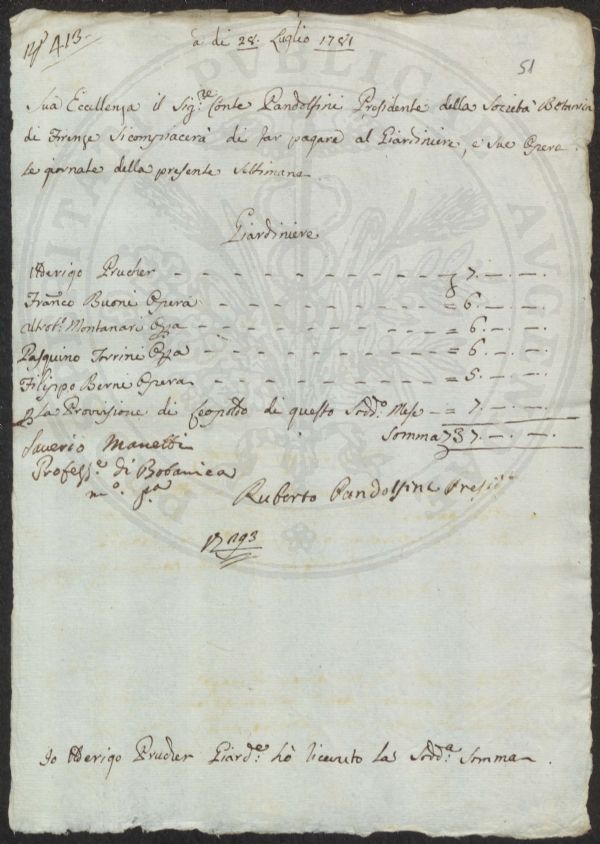 N.º 413.
a di 28. Luglio 1781
51
Sua Eccellenza il Sig.re Conte Pandolfini Presidente della Società Botanica
di Firenze Sicompiacerà di far pagare al Giardiniere, e Sue Opera
le giornate della presente Settimana
Giardiniere
Uderigo Prucher - - - - - - - - 7. —. —.
Fran.co Buoni Opera - - - - - - - = 6. —. —.
Montanari Op.a - - - - - - - = 6. —. —.
Pasquino Torrini Op.a - - - - - - - = 6 —. —.
Filippo Berni Opera - - - - - - - = 5. —. —.
P La Provisione di Leopoldo di questo Sodd.o Mese — = 7. —. —.
Somma 37. —. —.
Saverio Manetti
Profess.e di Botanica
m.o p.a
Ruberto Pandolfini Presid.te
293
Io Uderigo Prucher Giard.e hò riceuto la Sodd.a Somma